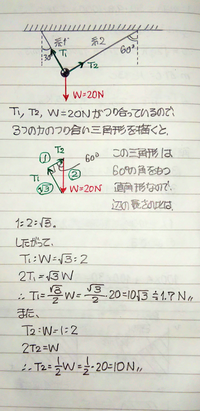 糸1
糸2
30°
60°
T₁
T₂
W=20N
T₁, T₂, W=20Nがつり合っているので、
3つの力のつり合い三角形を描くと、
① T₂ 60° この三角形は
T₁ ② 60°の角をもつ
√3 W=20N 直角形なので、
辺の長さの比は、
1:2:√3.
したがって、
T₁:W=√3:2
2T₁=√3W
∴T₁=√3/2W=√3/2・20=10√3≒1.7N〃
また、
T₂:W=1:2
2T₂=W
∴T₂=1/2W=1/2・20=10N〃